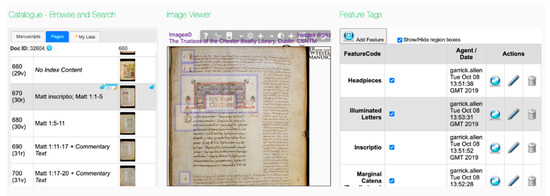 Catalogue - Browse and Search
Manuscripts Pages My Lists
Doc ID: 32604 660
660
(29v)
No Index Content
670
(30r)
Matt inscriptio; Matt 1:1-5
680
(30v)
Matt 1:5-11
690
(31r)
Matt 1:11-17 + Commentary
Text
700
(31v)
Matt 1:17-20 + Commentary
Text
Image Viewer
The Trustees of the Chester Beatty Library, Dublin CSNTM
Feature Tags
Add Feature Show/Hide region boxes
FeatureCode Agent / Date Actions
Headpieces
garrick.allen
Tue Oct 08
13:51:38
GMT 2019
Illuminated
Letters
garrick.allen
Tue Oct 08
13:53:31
GMT 2019
Inscriptio
garrick.allen
Tue Oct 08
13:51:52
GMT 2019
Marginal
Catena
garrick.allen
Tue Oct 08
13:52:28